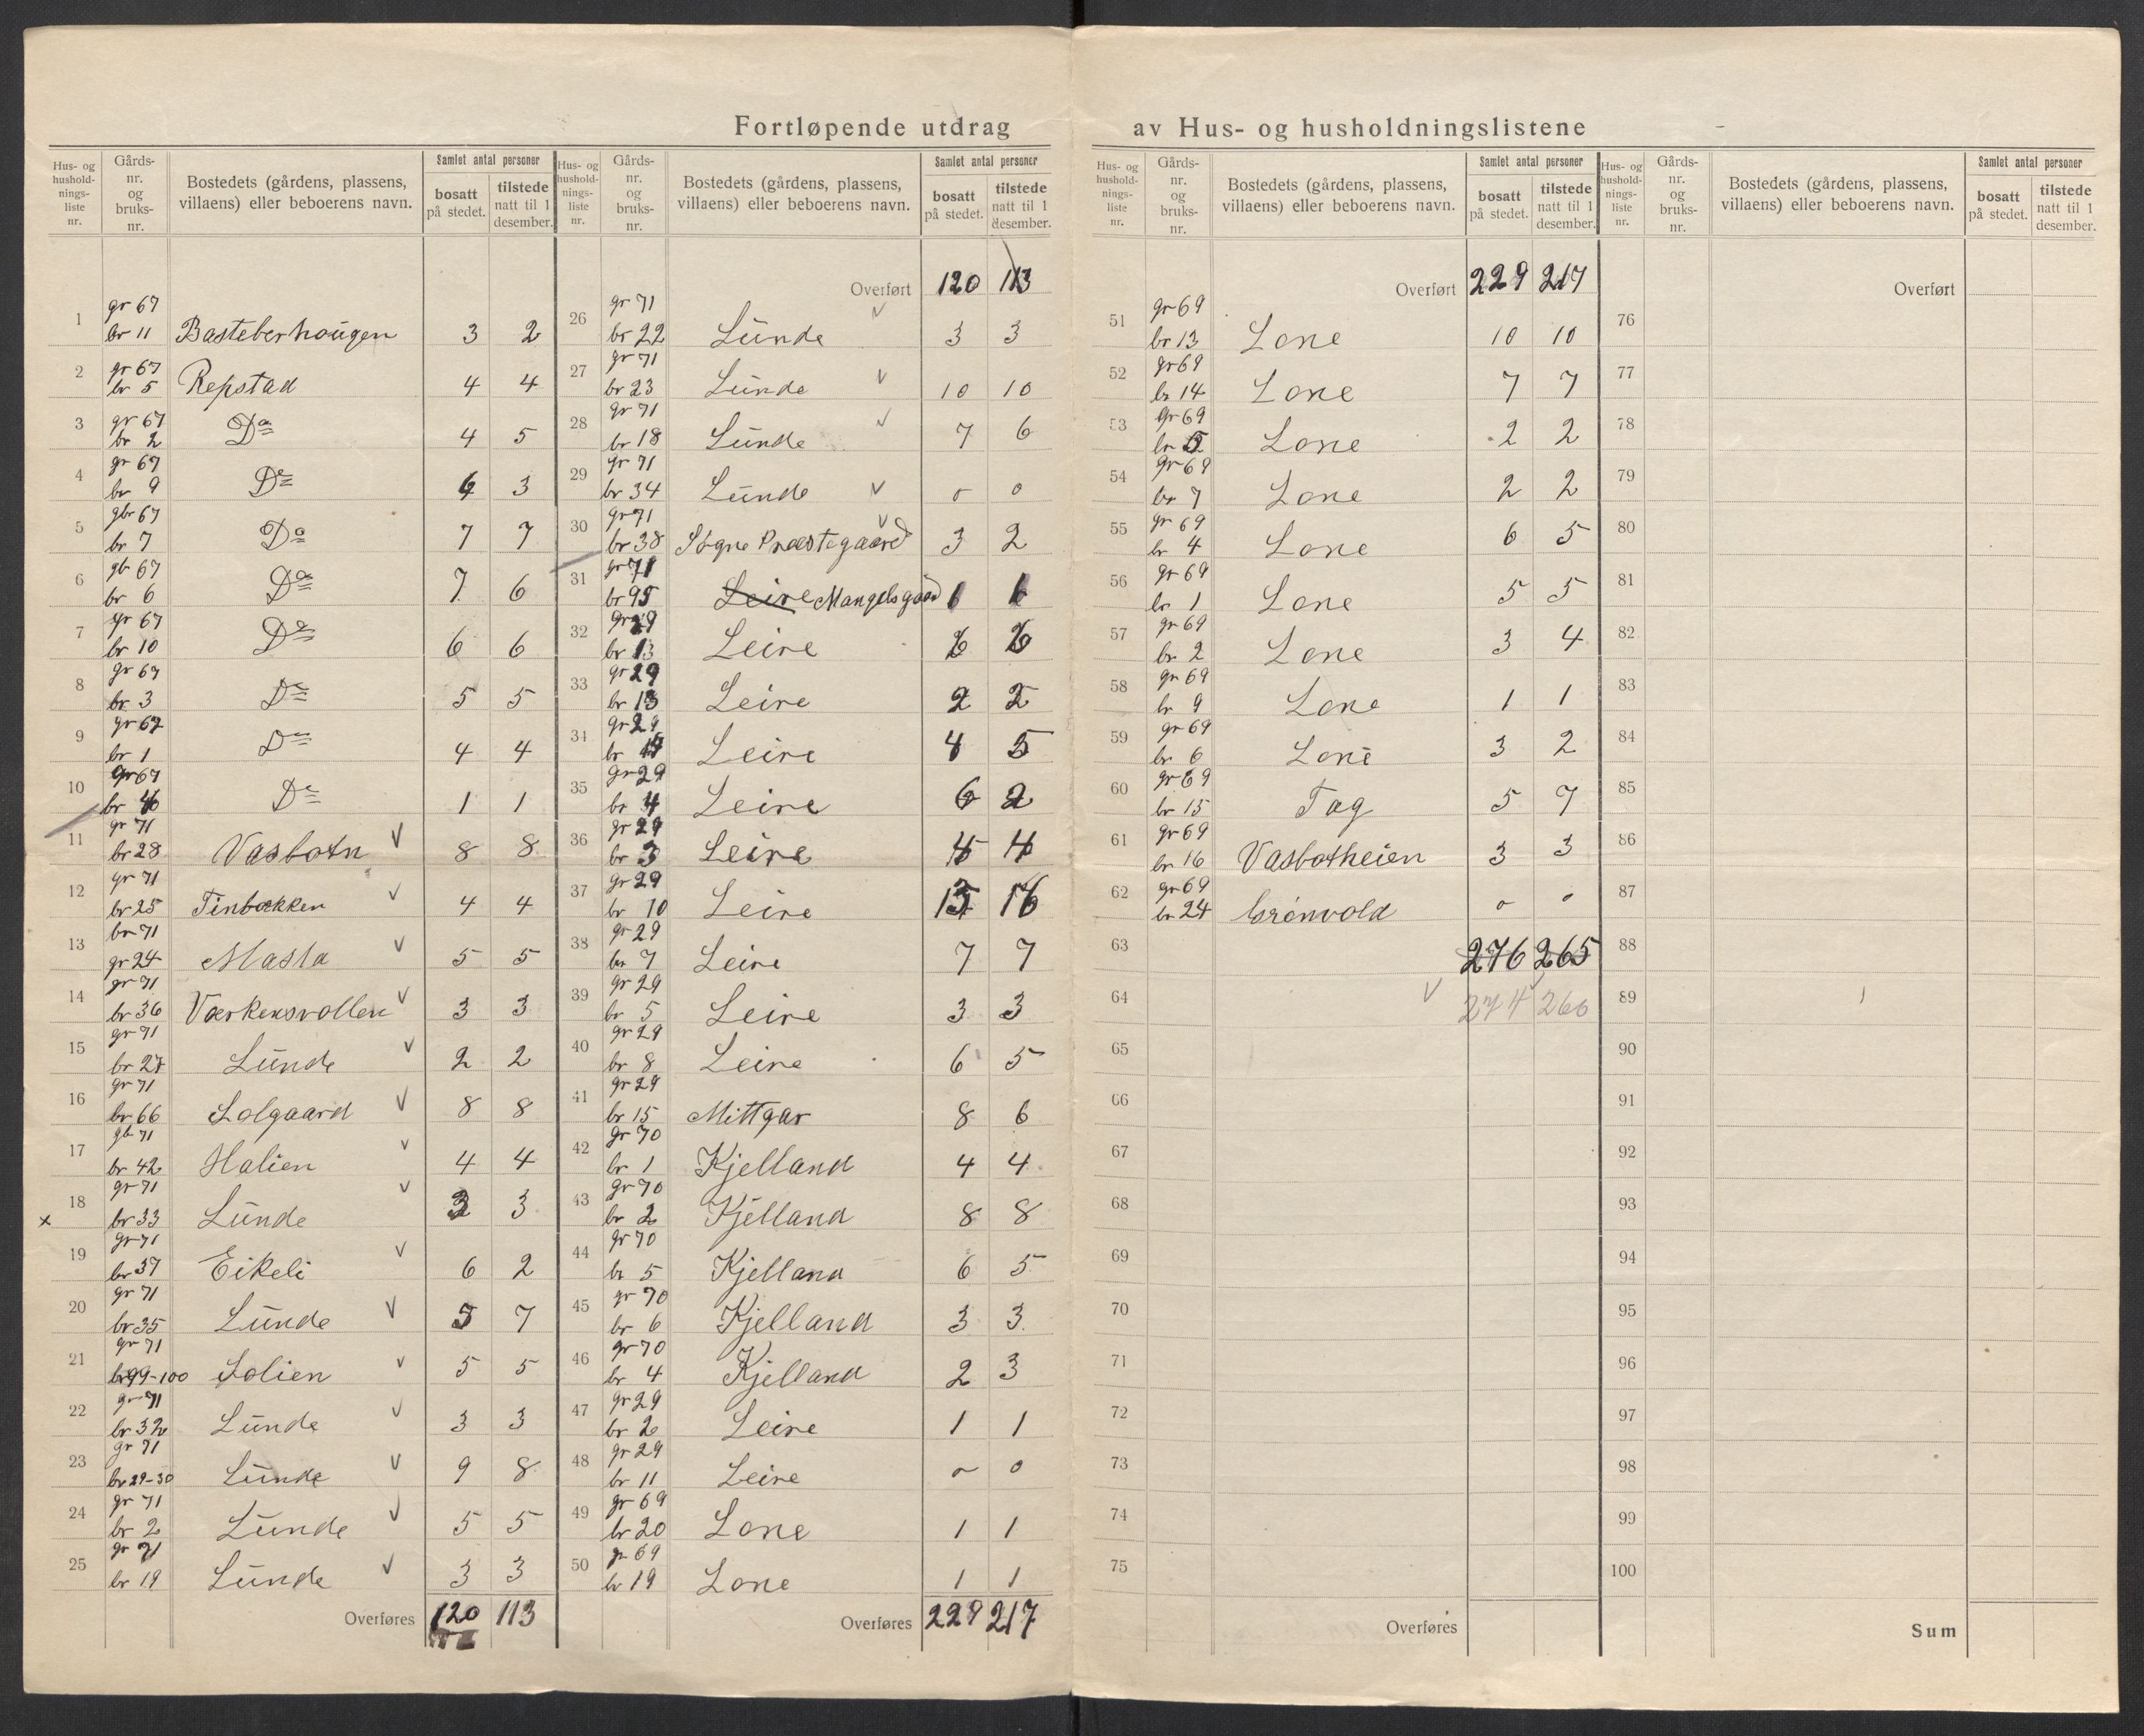 Fortløpende utdrag av Hus- og husholdningslistene
Hus- og husholdnings-liste nr. | Gårds-nr. og bruks-nr. | Bostedets (gårdens, plassens, villaens) eller beboerens navn. | Samlet antal personer | bosatt på stedet. | tilstede natt til 1 desember.
1 gr 67 br 11 Basteberhougen 3 2
2 gr 67 br 5 Repstad 4 4
3 gr 67 br 2 Do 4 5
4 gr 67 br 9 Do 3
5 gbr 67 br 7 Do 7 7
6 gb 67 br 6 Do 7 6
7 gr 67 br 10 Do 6 6
8 gr 67 br 3 Do 5 5
9 gr 67 br 1 Do 4 4
10 gr 67 br Do 1 1
11 gr 71 br 28 Vasbotn V 8 8
12 gr 71 br 25 Tinbækken V 4 4
13 br 71 gr 24 Masla V 5 5
14 gr 71 br 36 Værkensvollen V 3 3
15 gr 71 br 27 Lunde V 2 2
16 gr 71 br 66 Solgaard V 8 8
17 gb 71 br 42 Halien V 4 4
x 18 gr 71 br 33 Lunde V 3 3
19 gr 71 br 37 Eikeli V 6 2
20 gr 71 br 35 Lunde V 5 7
21 gr 71 br 99-100 Solien V 5 5
22 gr 71 br 32 Lunde V 3 3
23 gr 71 br 29-30 Lunde V 9 8
24 gr 71 br 2 Lunde V 5 5
25 gr 71 br 19 Lunde V 3 3
Overføres 120 113
Hus- og husholdnings-liste nr. | Gårds-nr. og bruks-nr. | Bostedets (gårdens, plassens, villaens) eller beboerens navn. | Samlet antal personer | bosatt på stedet. | tilstede natt til 1 desember.
Overført 120 113
26 gr 71 br 22 Lunde V 3 3
27 gr 71 br 23 Lunde V 10 10
28 gr 71 br 18 Lunde V 7 6
29 gr 71 br 34 Lunde V 0 0
30 gr 71 br 38 Søgne Præstegaard V 3 2
31 gr 71 br 95 Leire Mangelsgaard 1 1
32 gr 29 br 13 Leire
33 gr 29 br 13 Leire 2 2
34 gr 29 br Leire 4 5
35 gr 29 br 4 Leire 6 2
36 gr 29 br 3 Leire 4 4
37 gr 29 br 10 Leire 16
38 gr 29 br 7 Leire 7 7
39 gr 29 br 5 Leire 3 3
40 gr 29 br 8 Leire 6 5
41 gr 29 br 15 Mittgar 8 6
42 gr 70 br 1 Kjelland 4 4
43 gr 70 br 2 Kjelland 8 8
44 gr 70 br 5 Kjelland 6 5
45 gr 70 br 6 Kjelland 3 3
46 gr 70 br 4 Kjelland 2 3
47 gr 29 br 2 Leire 1 1
48 gr 29 br 11 Leire 0 0
49 gr 69 br 20 Lone 1 1
50 gr 69 br 19 Lone 1 1
Overføres 229 217
Hus- og husholdnings-liste nr. | Gårds-nr. og bruks-nr. | Bostedets (gårdens, plassens, villaens) eller beboerens navn. | Samlet antal personer | bosatt på stedet. | tilstede natt til 1 desember.
Overført 229 217
51 gr 69 br 13 Lone 10 10
52 gr 69 br 14 Lone 7 7
53 gr 69 br 5 Lone 2 2
54 gr 69 br 7 Lone 2 2
55 gr 69 br 4 Lone 6 5
56 gr 69 br 1 Lone 5 5
57 gr 69 br 2 Lone 3 4
58 gr 69 br 9 Lone 1 1
59 gr 69 br 6 Lone 3 2
60 gr 69 br 15 Tag 5 7
61 gr 69 br 16 Vasbotheien 3 3
62 gr 69 br 24 Grønvold 0 0
63 276 265
64 V 274 260
65
66
67
68
69
70
71
72
73
74
75
Overføres
Hus- og husholdnings-liste nr. | Gårds-nr. og bruks-nr. | Bostedets (gårdens, plassens, villaens) eller beboerens navn. | Samlet antal personer | bosatt på stedet. | tilstede natt til 1 desember.
Overført
76
77
78
79
80
81
82
83
84
85
86
87
88
89
90
91
92
93
94
95
96
97
98
99
100
Sum